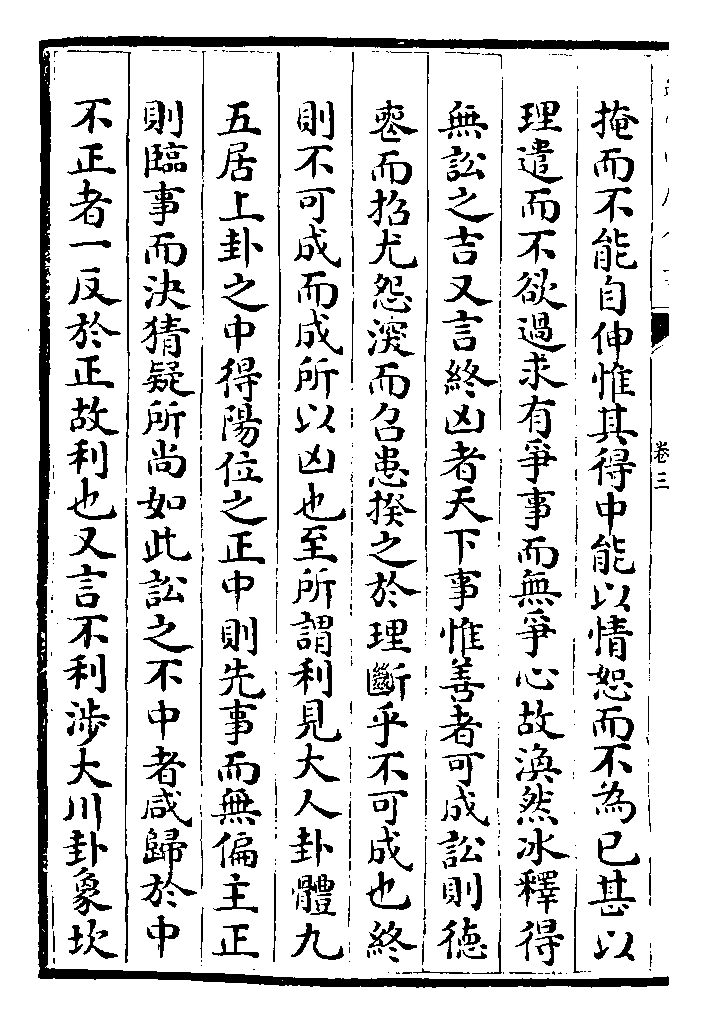 掩而不能自伸惟其得中能以情恕而不為已甚以
理遣而不欲過求有爭事而無爭心故渙然冰釋得
無訟之吉又言終凶者天下事惟善者可成訟則德
喪而招尤怨深而召患揆之於理斷乎不可成也終
則不可成而成所以凶也至所謂利見大人卦體九
五居上卦之中得陽位之正中則先事而無偏主正
則臨事而決猜疑所尚如此訟之不中者咸歸於中
不正者一反於正故利也又言不利涉大川卦象坎
卷三